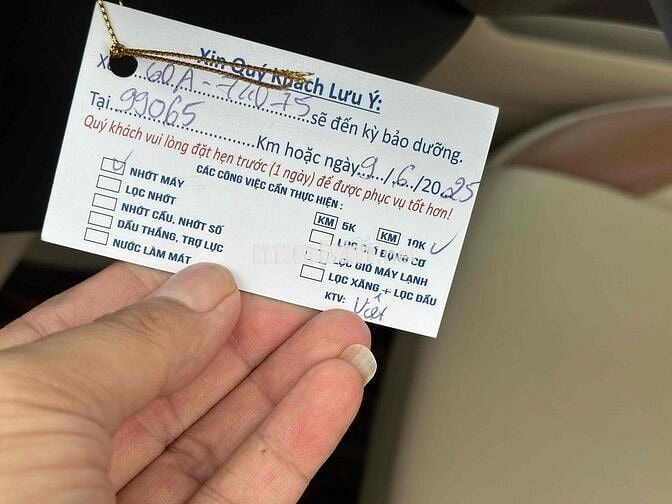 Xin Quý Khách Lưu Ý:
60A - 740.75 sẽ đến kỳ bảo dưỡng.
Tại 99065 Km hoặc ngày 9/6/2025
Quý khách vui lòng đặt hẹn trước (1 ngày) để được phục vụ tốt hơn!
CÁC CÔNG VIỆC CẦN THỰC HIỆN :
NHỚT MÁY
LỌC NHỚT
NHỚT CẦU, NHỚT SỐ
DẦU THẮNG, TRỢ LỰC
NƯỚC LÀM MÁT
KM 5K KM 10K
LỌC GIÓ ĐỘNG CƠ
LỌC GIÓ MÁY LẠNH
LỌC XĂNG + LỌC DẦU
KTV: Việt